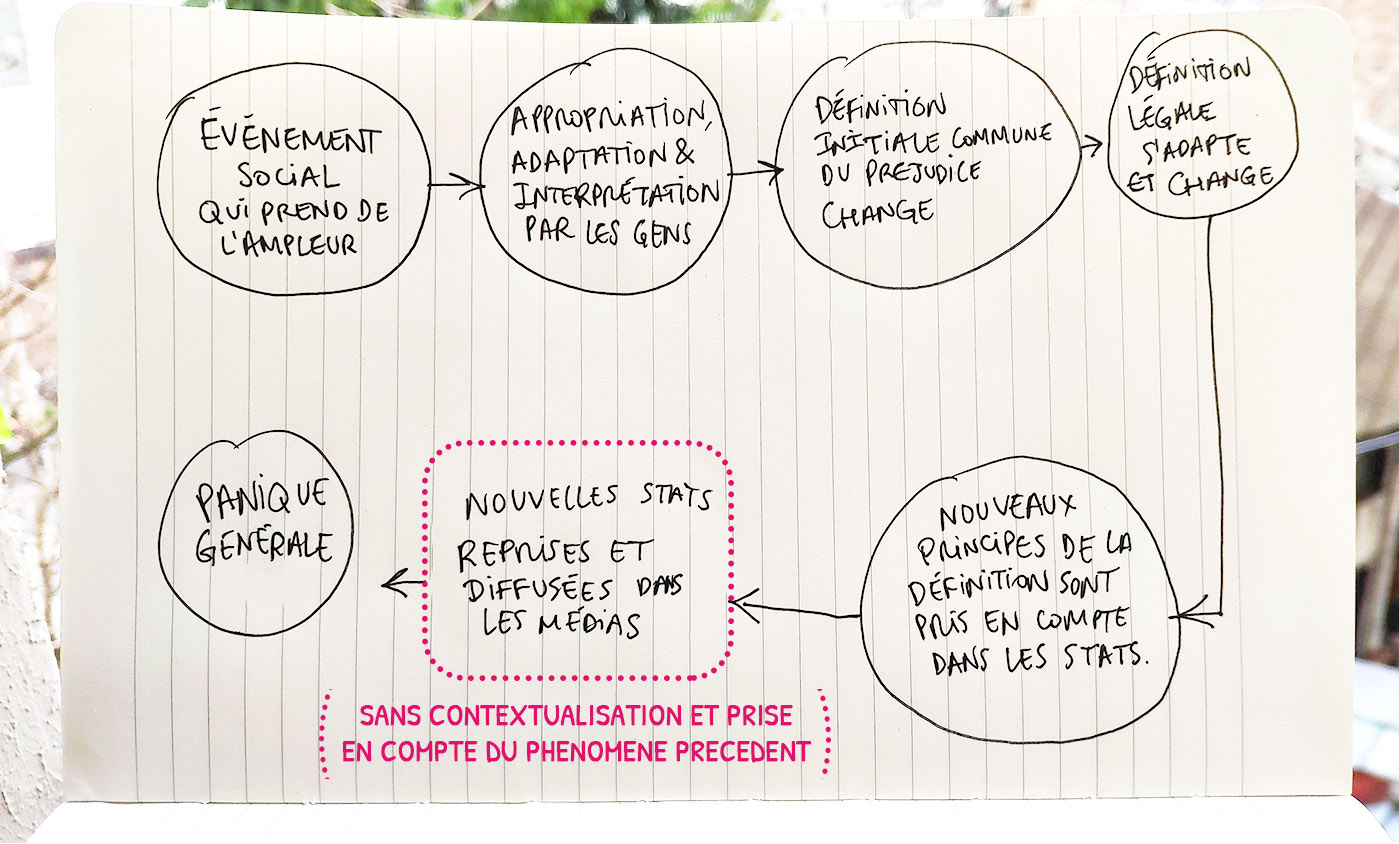 ÉVÉNEMENT
SOCIAL
QUI PREND DE
L'AMPLEUR
APPROPRIATION,
ADAPTATION &
INTERPRÉTATION
PAR LES GENS
DÉFINITION
INITIALE COMMUNE
DU PREJUDICE
CHANGE
DÉFINITION
LÉGALE
S'ADAPTE
ET CHANGE
NOUVEAUX
PRINCIPES DE LA
DÉFINITION SONT
PRIS EN COMPTE
DANS LES STATS.
NOUVELLES STATS
REPRISES ET
DIFFUSÉES DANS
LES MÉDIAS
SANS CONTEXTUALISATION ET PRISE
EN COMPTE DU PHENOMENE PRECEDENT
PANIQUE
GÉNÉRALE